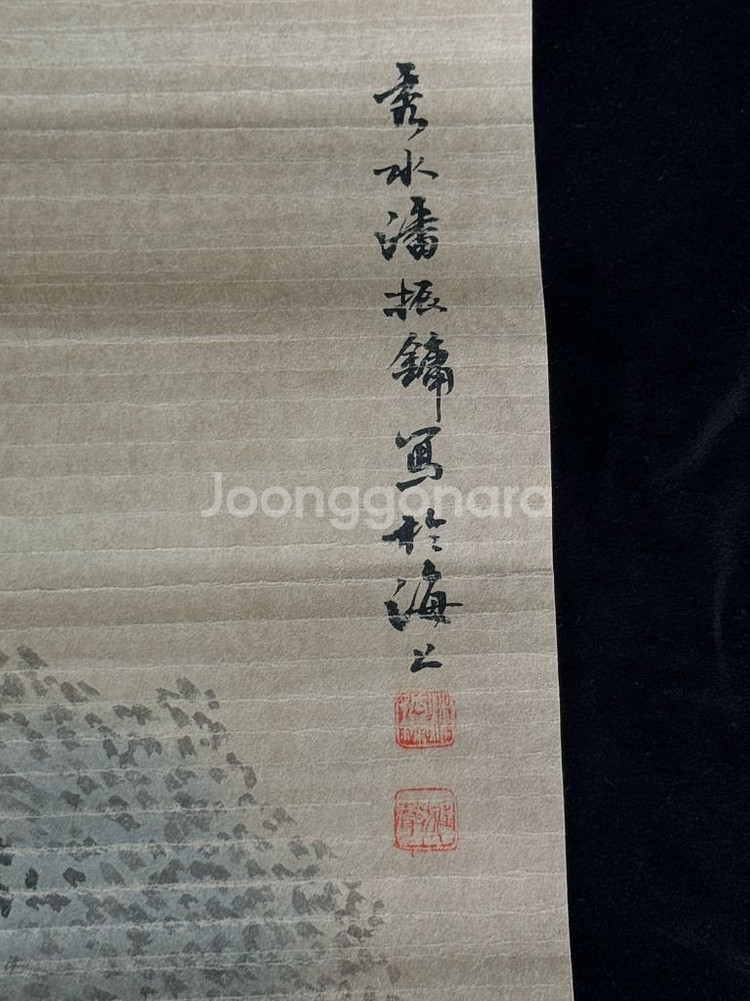 秀水潘振鏞寫於海上
Joonggonara